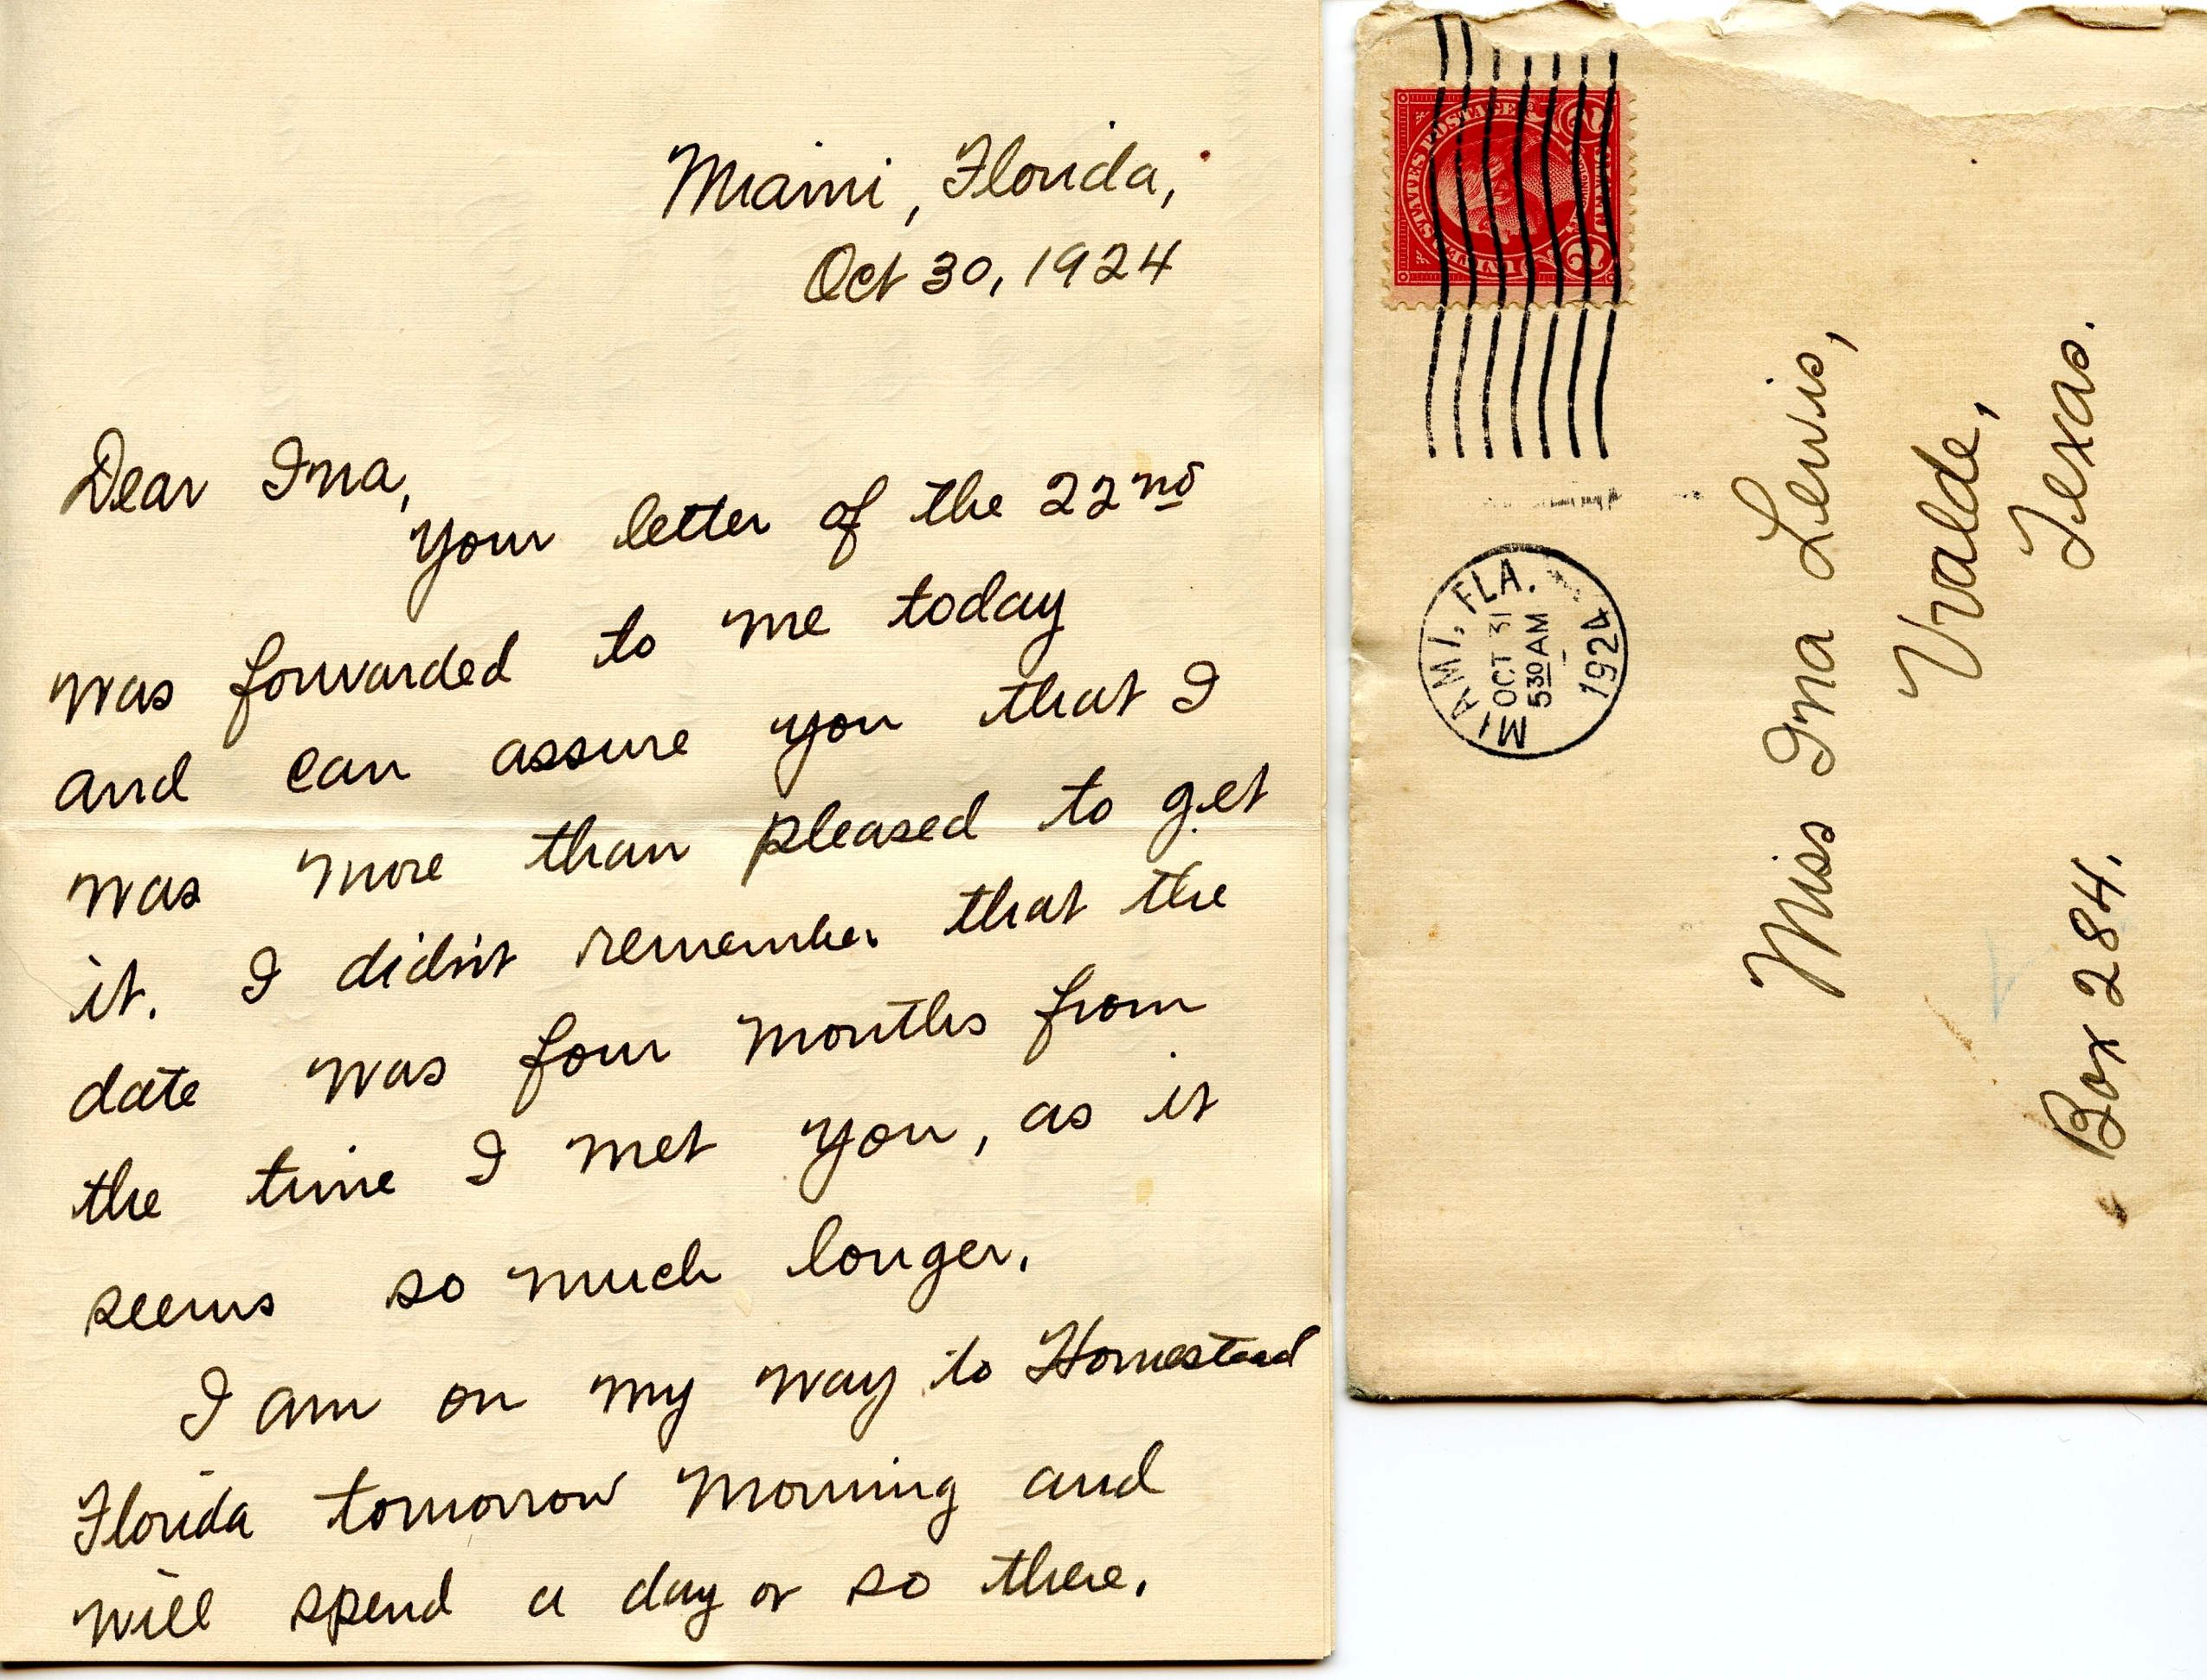 Miami, Florida,
Oct 30, 1924
Dear Ina,
Your letter of the 22nd
was forwarded to me today
and can assure you that I
was more than pleased to get
it. I didn't remember that the
date was four months from
the time I met you, as it
seems so much longer.
I am on my way to Homestead
Florida tomorrow morning and
will spend a day or so there.
UNITED STATES POSTAGE
2 CENTS 2
MIAMI, FLA.
OCT 31
530 AM
1924
Miss Ina Lewis,
Uvalde,
Texas.
Box 284.